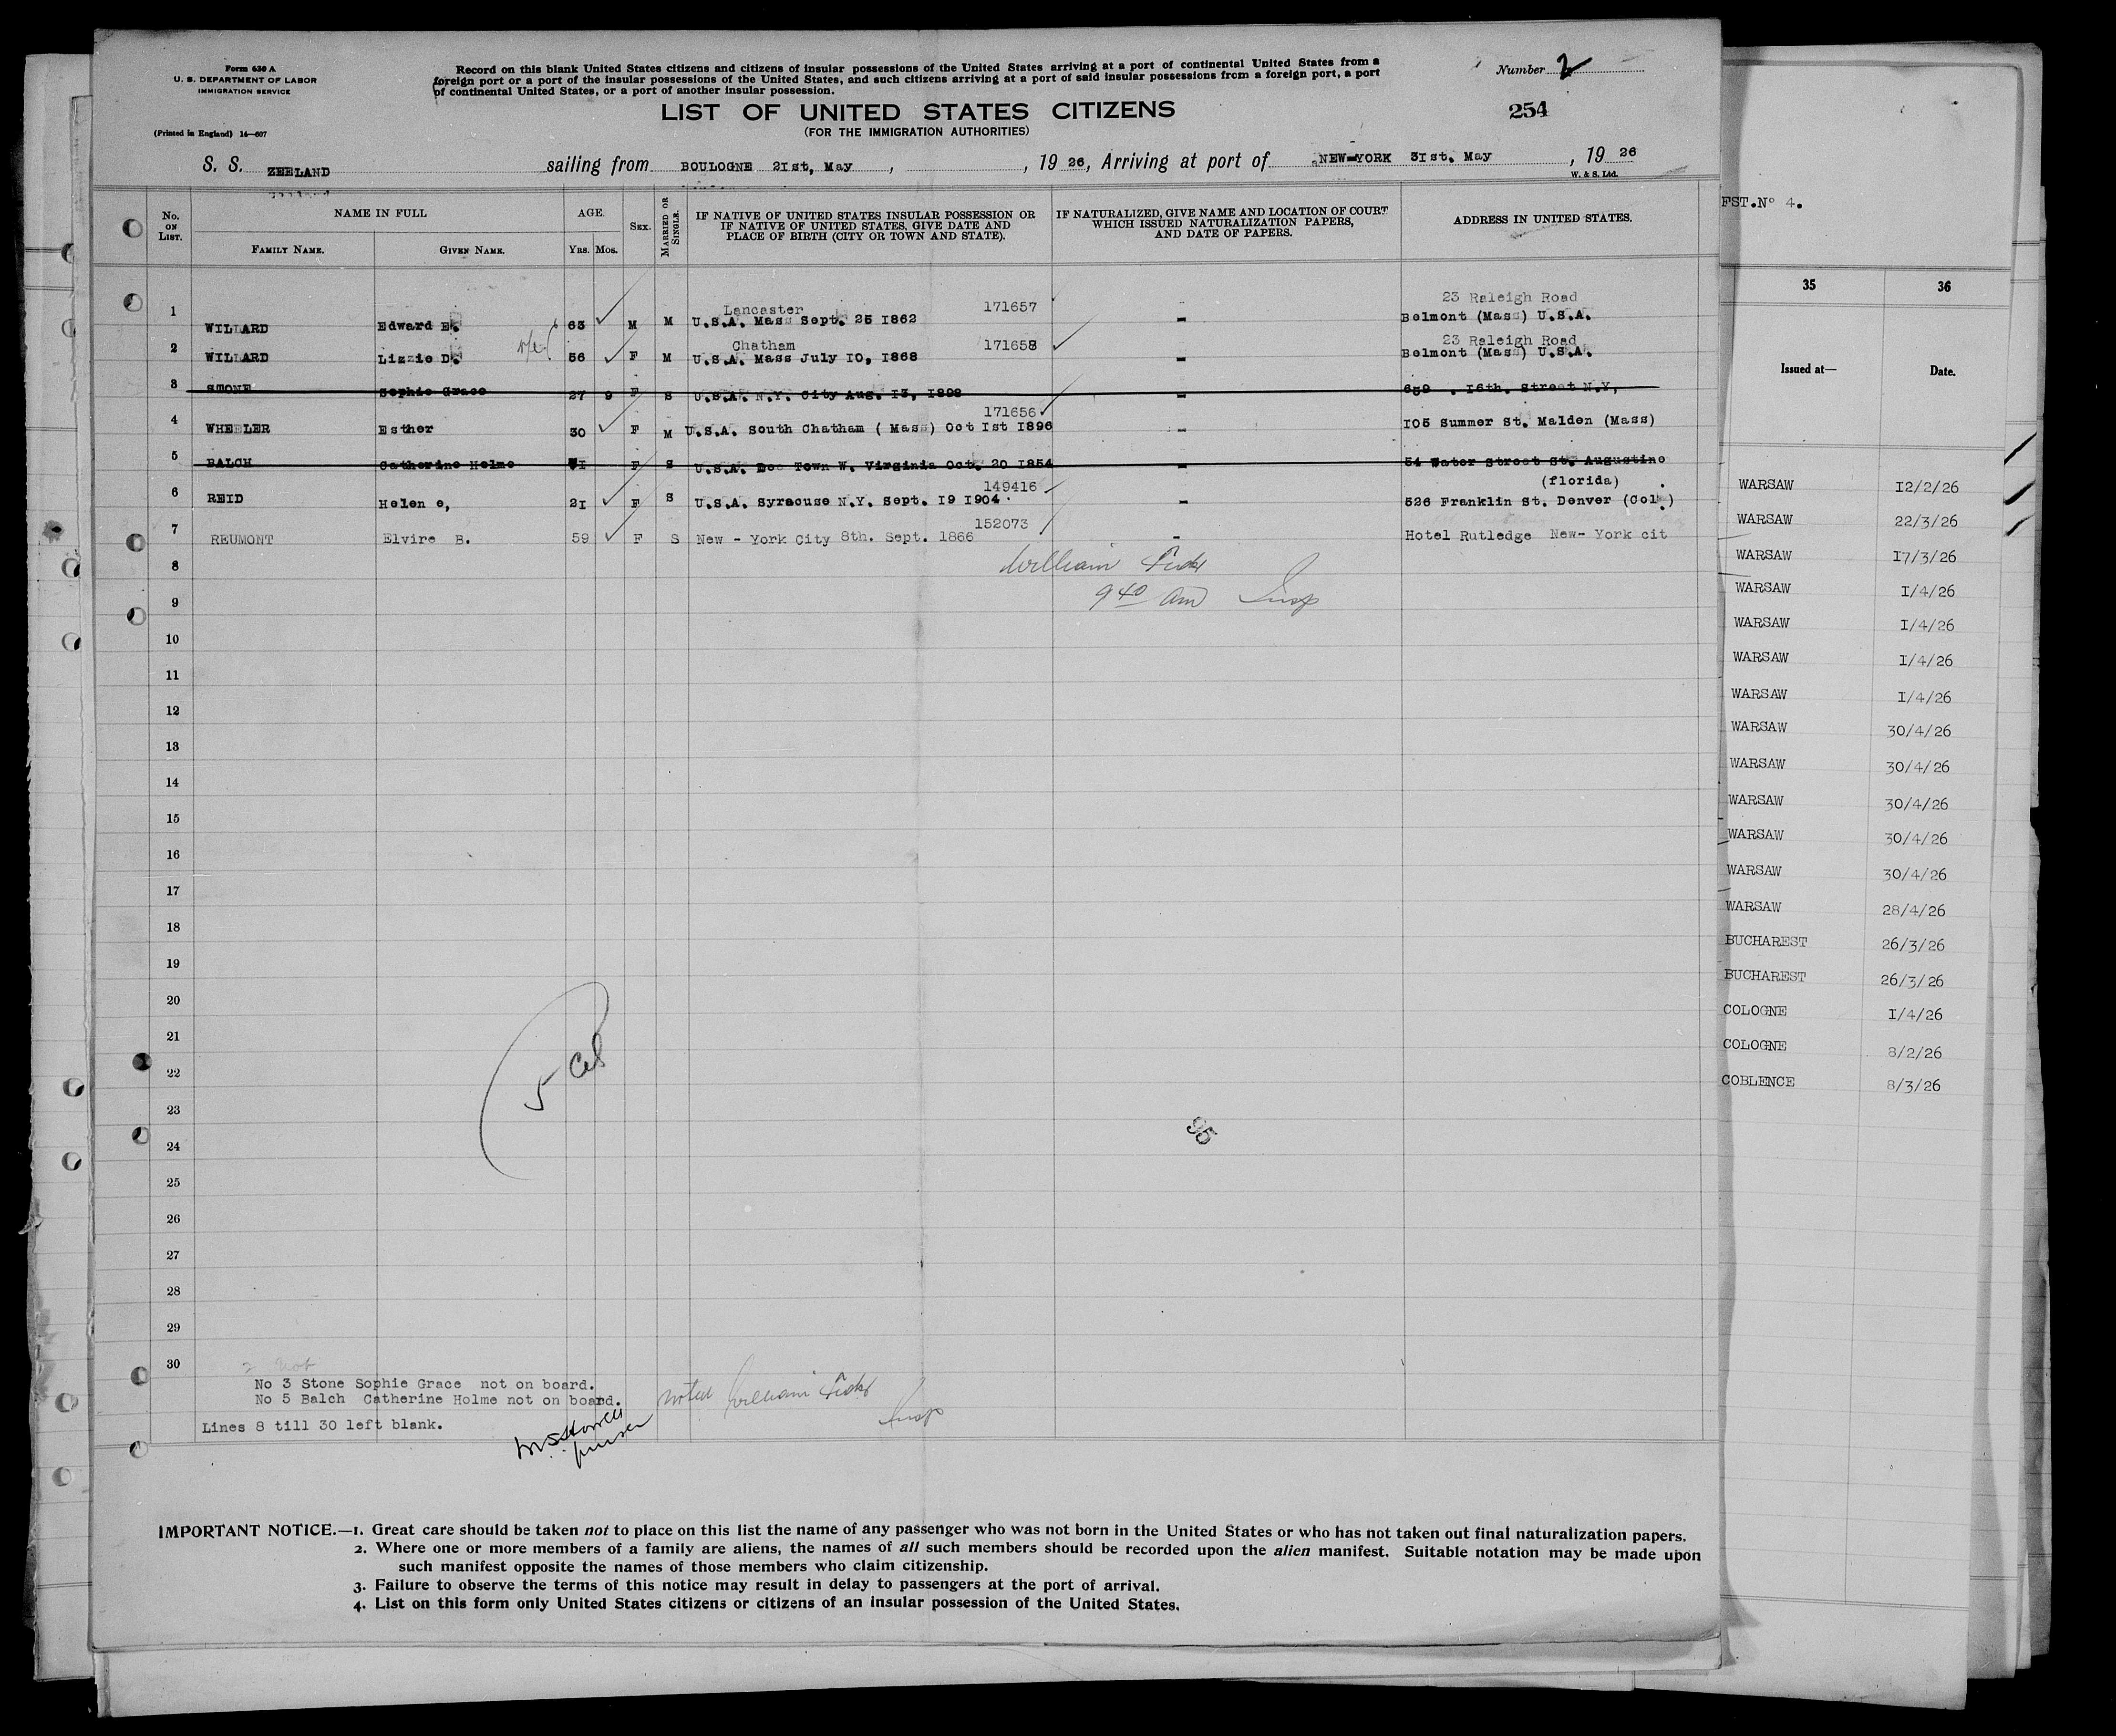 Form 630 A
U. S. DEPARTMENT OF LABOR
IMMIGRATION SERVICE
(Printed in England) 14—607
Record on this blank United States citizens and citizens of insular possessions of the United States arriving at a port of continental United States from a
foreign port or a port of the insular possessions of the United States, and such citizens arriving at a port of said insular possessions from a foreign port, a port
of continental United States, or a port of another insular possession.
Number 2
LIST OF UNITED STATES CITIZENS
(FOR THE IMMIGRATION AUTHORITIES)
254
S. S. ZEELAND sailing from BOULOGNE 21st, May , , 19 26, Arriving at port of NEW-YORK 31st. May , 19 26
W. & S. Ltd.
No. ON LIST.
NAME IN FULL
FAMILY NAME. GIVEN NAME.
AGE.
YRS. MOS.
SEX.
MARRIED OR SINGLE.
IF NATIVE OF UNITED STATES INSULAR POSSESSION OR
IF NATIVE OF UNITED STATES, GIVE DATE AND
PLACE OF BIRTH (CITY OR TOWN AND STATE).
IF NATURALIZED, GIVE NAME AND LOCATION OF COURT
WHICH ISSUED NATURALIZATION PAPERS,
AND DATE OF PAPERS.
ADDRESS IN UNITED STATES.
Lancaster 171657 23 Raleigh Road
1 WILLARD Edward E. 63 M M U.S.A. Mass Sept. 25 1862 - Belmont (Mass) U.S.A.
Chatham 171658 23 Raleigh Road
2 WILLARD Lizzie D. 56 F M U.S.A. Mass July 10, 1868 - Belmont (Mass) U.S.A.
3 SMONE Sophie Grace 27 9 F S U.S.A. N.Y. City Aug. 13, 1898 - 639 . 16th. Street N.Y,
171656
4 WHEELER Esther 30 F M U.S.A. South Chatham ( Mass) Oct 1st 1896 - 105 Summer St. Malden (Mass)
5 BALCH Catherine Holme 71 F S U.S.A. Town W. Virginia Oct. 20 1854 - 54 Water Street St. Augustine
149416 (florida)
6 REID Helen e, 21 F S U.S.A. Syracuse N.Y. Sept. 19 1904 - 526 Franklin St. Denver (Col.)
152073
7 REUMONT Elvire B. 59 F S New - York City 8th. Sept. 1866 - Hotel Rutledge New- York cit
8 William
9 9 40 am Insp
10
11
12
13
14
15
16
17
18
19
20
21
22
23
24
25
26
27
28
29
30
5
95
2 Not
No 3 Stone Sophie Grace not on board.
No 5 Balch Catherine Holme not on board.
Lines 8 till 30 left blank.
noted William
Insp
purser
IMPORTANT NOTICE.—1. Great care should be taken not to place on this list the name of any passenger who was not born in the United States or who has not taken out final naturalization papers.
2. Where one or more members of a family are aliens, the names of all such members should be recorded upon the alien manifest. Suitable notation may be made upon
such manifest opposite the names of those members who claim citizenship.
3. Failure to observe the terms of this notice may result in delay to passengers at the port of arrival.
4. List on this form only United States citizens or citizens of an insular possession of the United States.
FST.Nº 4.
35 36
Issued at— Date.
WARSAW 12/2/26
WARSAW 22/3/26
WARSAW 17/3/26
WARSAW 1/4/26
WARSAW 1/4/26
WARSAW 1/4/26
WARSAW 1/4/26
WARSAW 30/4/26
WARSAW 30/4/26
WARSAW 30/4/26
WARSAW 30/4/26
WARSAW 30/4/26
WARSAW 28/4/26
BUCHAREST 26/3/26
BUCHAREST 26/3/26
COLOGNE 1/4/26
COLOGNE 8/2/26
COBLENCE 8/3/26